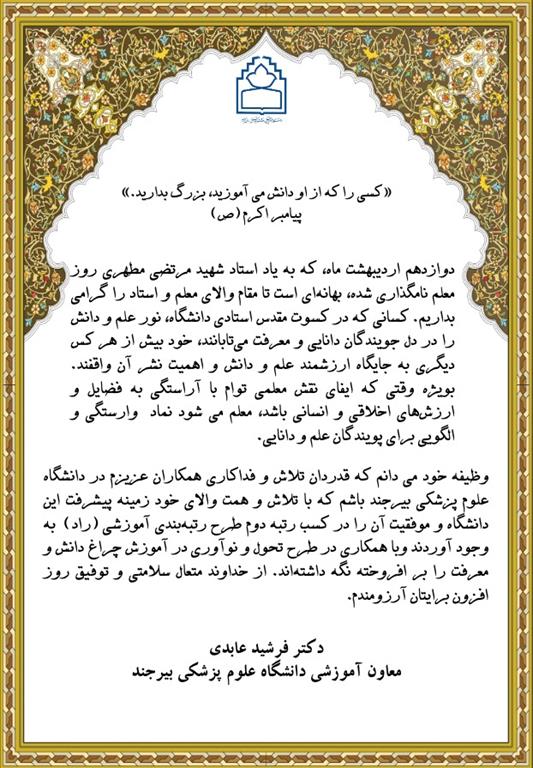 «کسی را که از او دانش می آموزید، بزرگ بدارید.»
پیامبر اکرم(ص)
دوازدهم اردیبهشت ماه، که به یاد استاد شهید مرتضی مطهری روز
معلم نامگذاری شده، بهانه‌ای است تا مقام والای معلم و استاد را گرامی
بداریم. کسانی که در کسوت مقدس استادی دانشگاه، نور علم و دانش
را در دل جویندگان دانایی و معرفت می‌تابانند، خود بیش از هر کس
دیگری به جایگاه ارزشمند علم و دانش و اهمیت نشر آن واقفند.
بویژه وقتی که ایفای نقش معلمی توام با آراستگی به فضایل و
ارزش‌های اخلاقی و انسانی باشد، معلم می شود نماد وارستگی و
الگویی برای پویندگان علم و دانایی.
وظیفه خود می دانم که قدردان تلاش و فداکاری همکاران عزیزم در دانشگاه
علوم پزشکی بیرجند باشم که با تلاش و همت والای خود زمینه پیشرفت این
دانشگاه و موفقیت آن را در کسب رتبه دوم طرح رتبه‌بندی آموزشی (راد) به
وجود آوردند وبا همکاری در طرح تحول و نوآوری در آموزش چراغ دانش و
معرفت را بر افروخته نگه داشته‌اند. از خداوند متعال سلامتی و توفیق روز
افزون برایتان آرزومندم.
دکتر فرشید عابدی
معاون آموزشی دانشگاه علوم پزشکی بیرجند